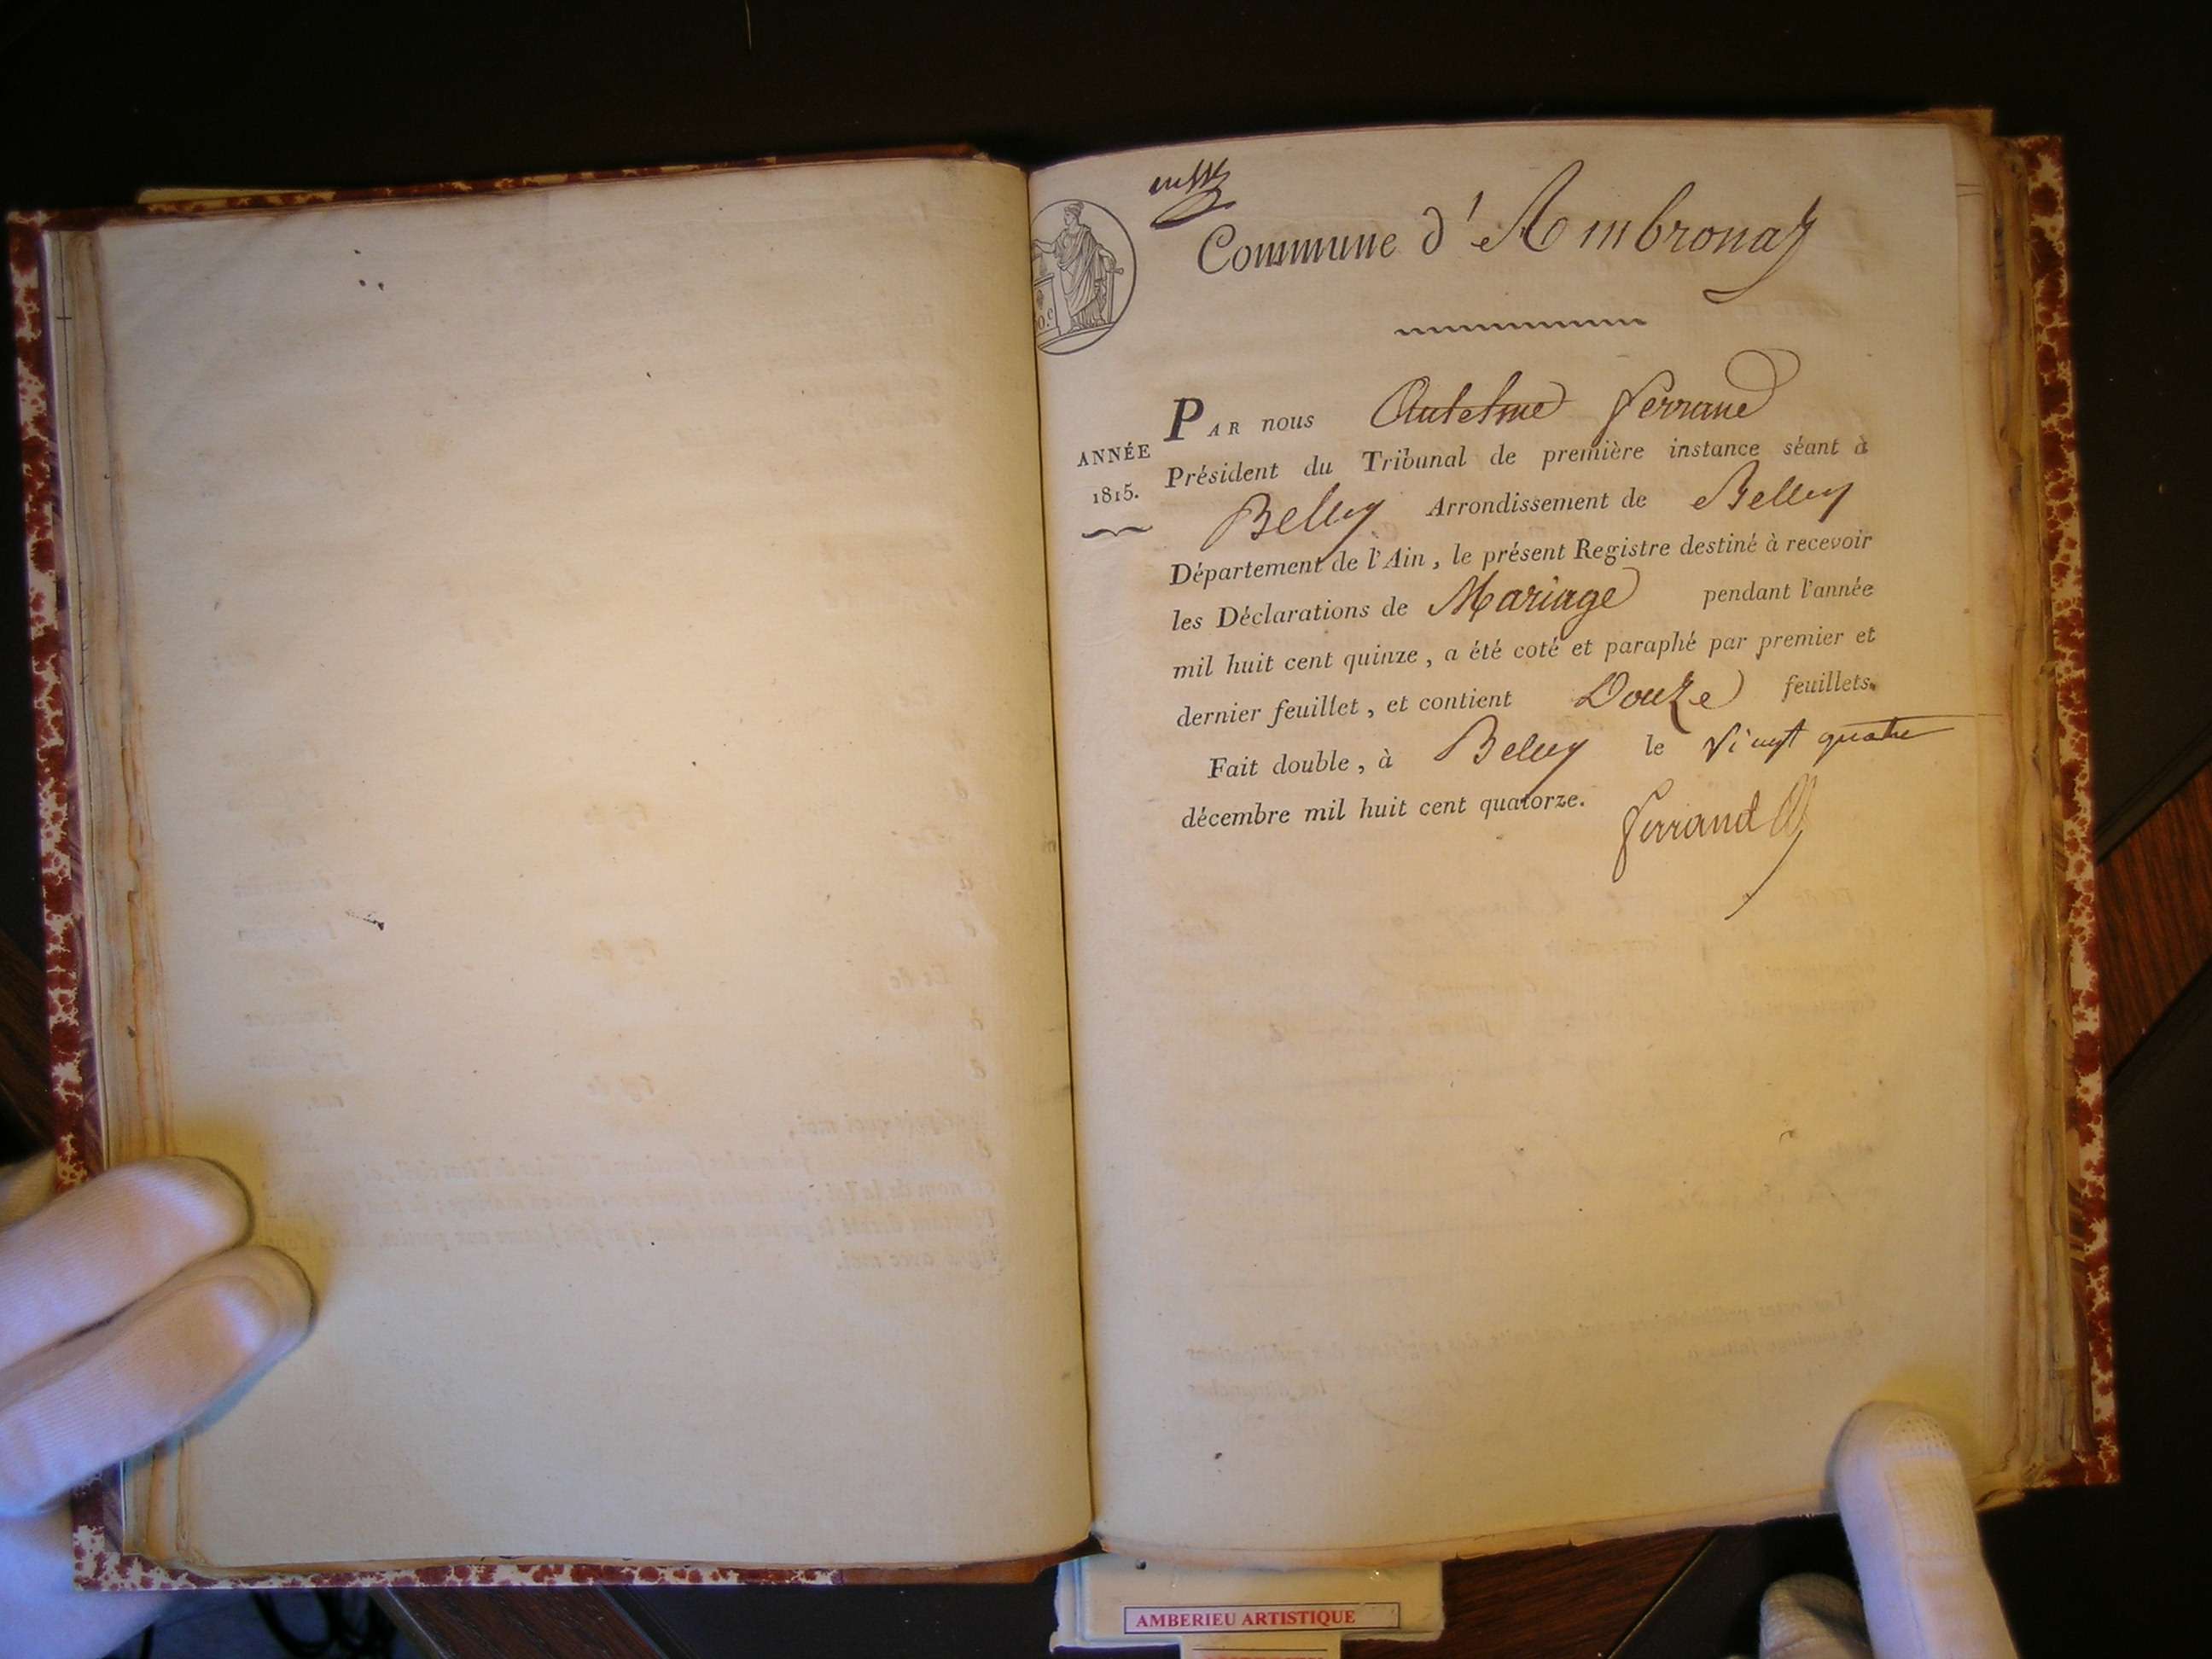 Commune d'Ambronay
ANNÉE
1815.
PAR nous Antelme Ferrand
Président du Tribunal de première instance séant à
Belley Arrondissement de Belley
Département de l'Ain, le présent Registre destiné à recevoir
les Déclarations de Mariage pendant l'année
mil huit cent quinze, a été coté et paraphé par premier et
dernier feuillet, et contient Douze feuillets.
Fait double, à Belley le vingt quatre
décembre mil huit cent quatorze.
Ferrand
AMBERIEU ARTISTIQUE